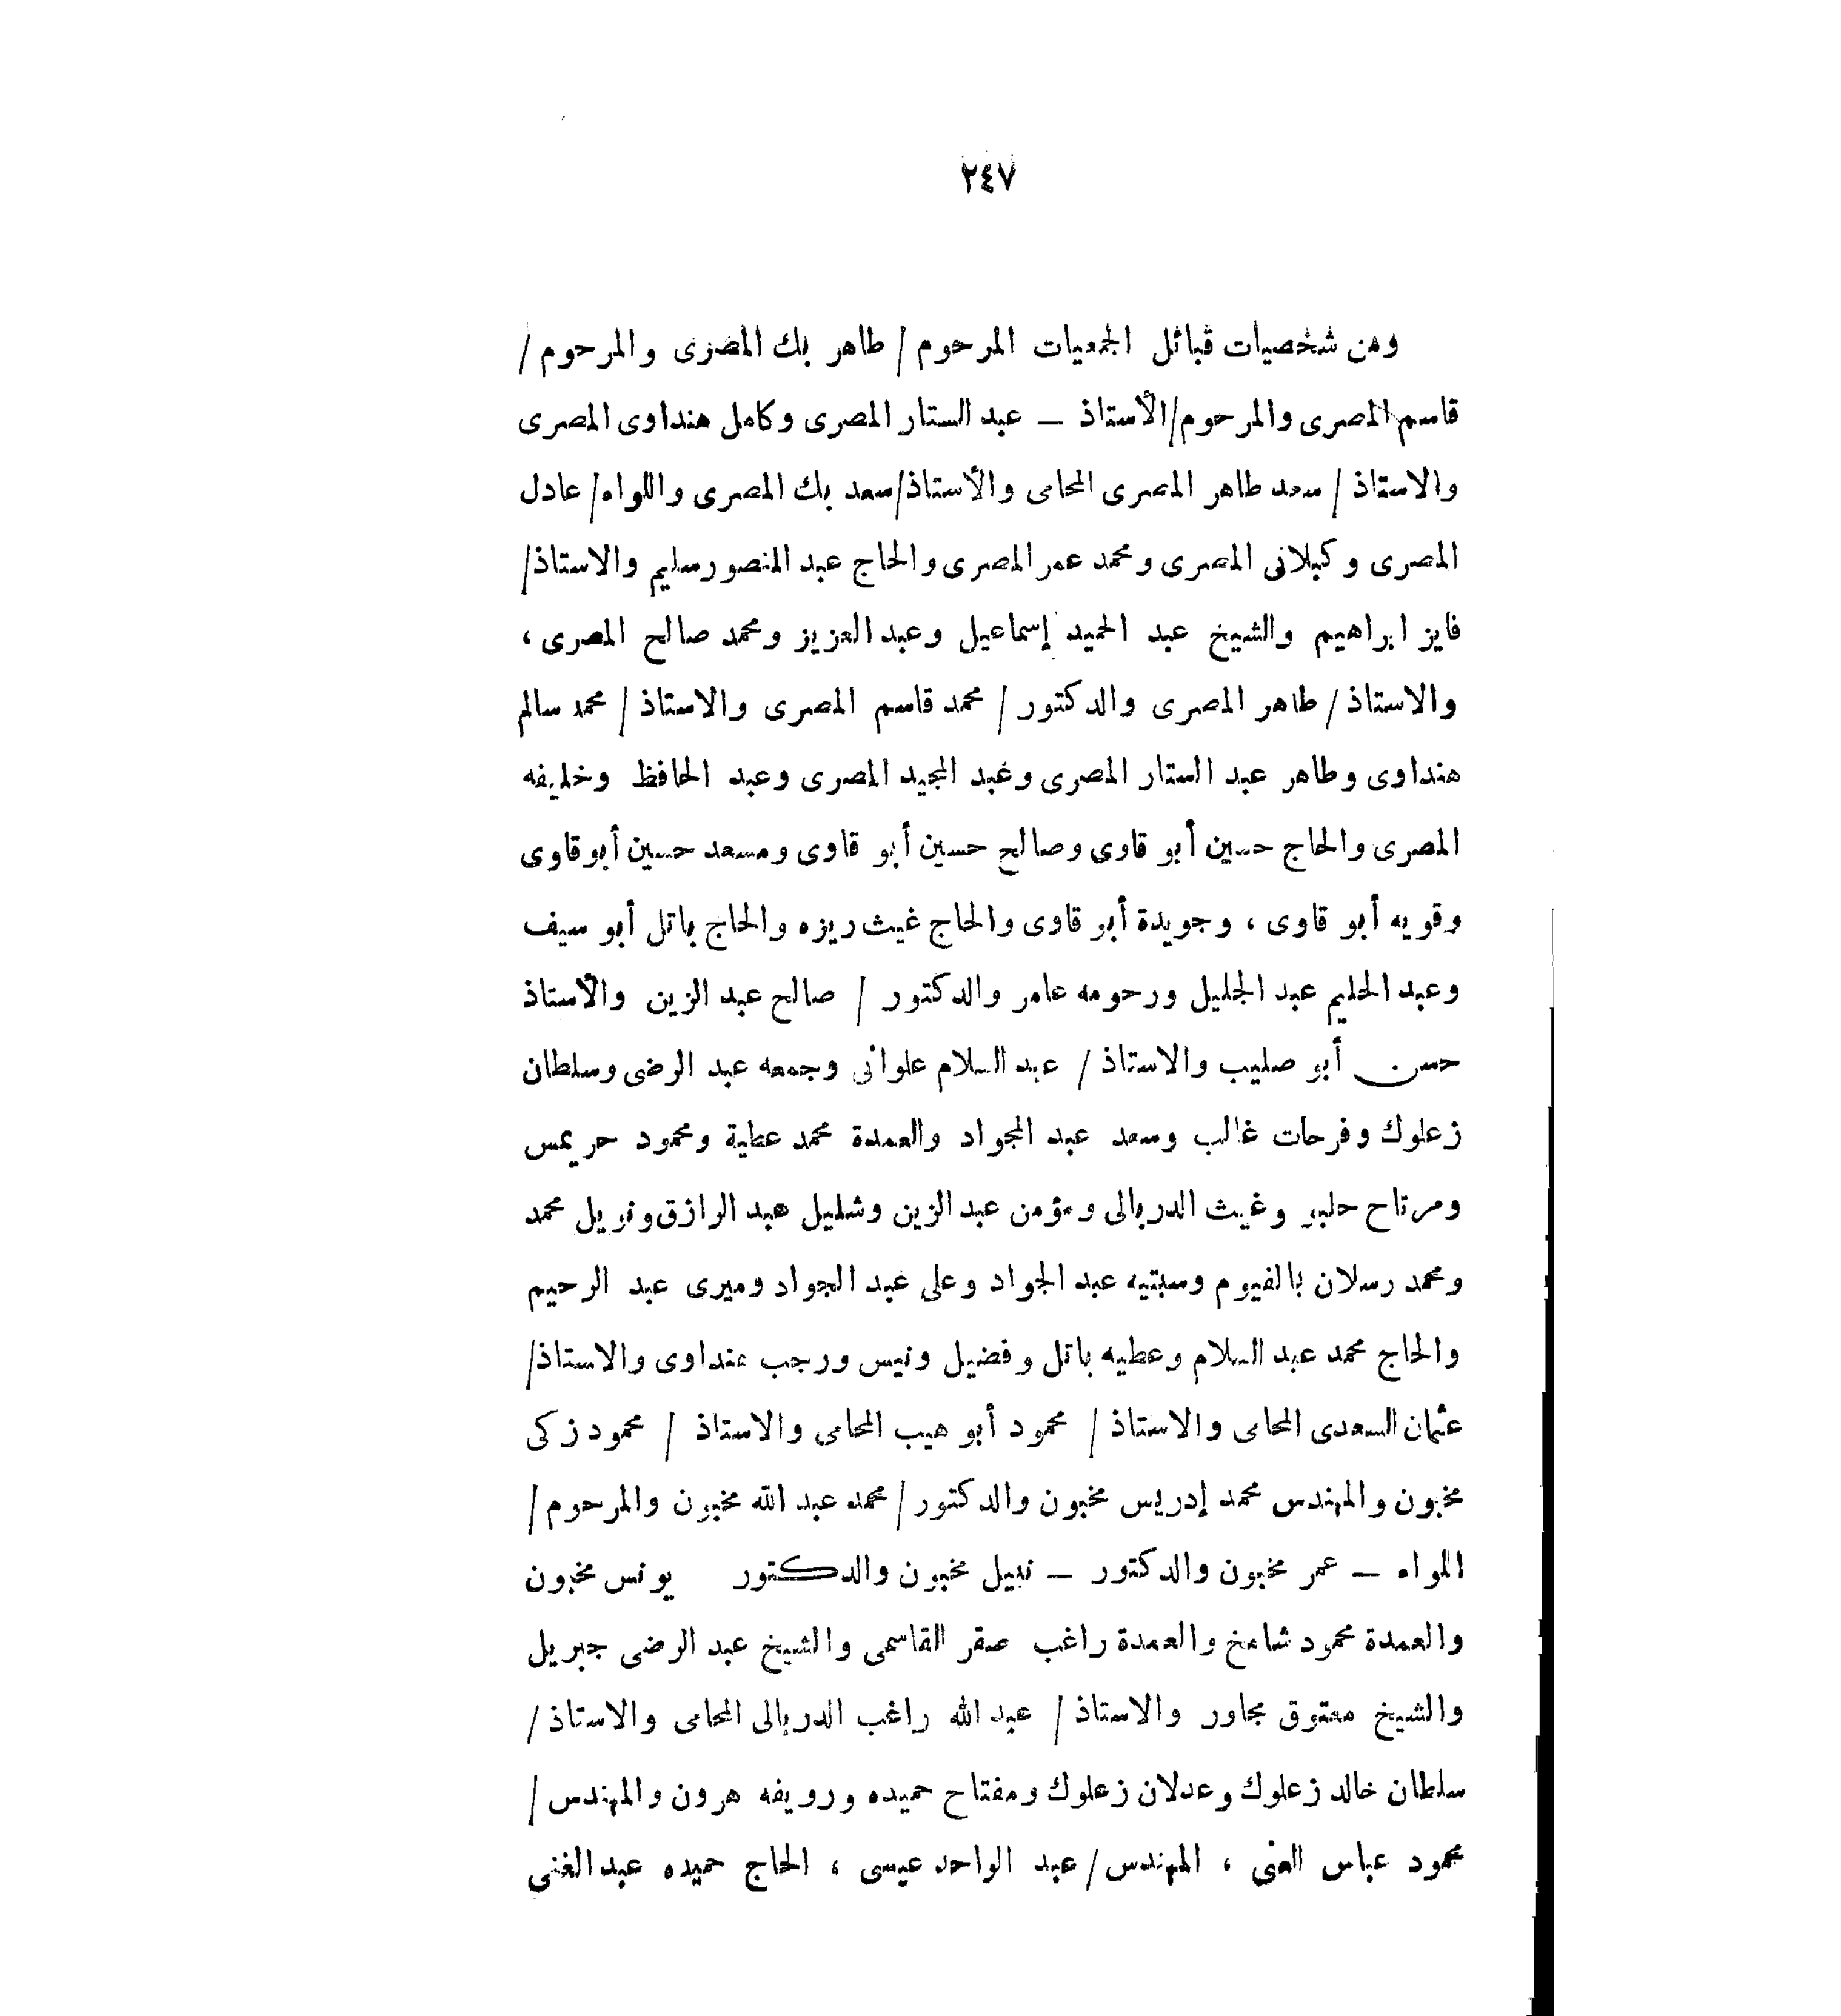 ٢٤٧
ومن شخصيات قبائل الجمعيات المرحوم / طاهر بك المصرى والمرحوم /
قاسم المصرى والمرحوم/الأستاذ – عبد الستار المصرى وكامل هنداوى المصرى
والاستاذ / سعد طاهر المصرى المحامى والأستاذ/سعد بك المصرى واللواء/ عادل
المصرى وكيلانى المصرى ومحمد عمر المصرى والحاج عبد المنصور سليم والاستاذ/
فايز ابراهيم والشيخ عبد الحميد إسماعيل وعبد العزيز ومحمد صالح المصرى ،
والاستاذ / طاهر المصرى والدكتور / محمد قاسم المصرى والاستاذ / محمد سالم
هنداوى وطاهر عبد الستار المصرى وعبد المجيد المصرى وعبد الحافظ وخليفه
المصرى والحاج حسين أبو قاوى وصالح حسين أبو قاوى ومسعد حسين أبوقاوى
وقويه أبو قاوى ، وجويدة أبو قاوى والحاج غيث ريزه والحاج باتل أبو سيف
وعبد الحليم عبد الجليل ورحومه عامر والدكتور / صالح عبد الزين والأستاذ
حسن أبو صليب والاستاذ / عبد السلام علوانى وجمعه عبد الرضى وسلطان
زعلوك وفرحات غالب وسعد عبد الجواد والعمدة محمد عطية ومحمود حريمس
ومرتاح وغيث الدربالى ومؤمن عبد الزين وشليل عبد الرازق ونويل محمد
ومحمد رسلان بالفيوم وسبتيه عبد الجواد وعلى عبد الجواد وميرى عبد الرحيم
والحاج محمد عبد السلام وعطيه باتل وفضيل ونيس ورجب هنداوى والاستاذ/
عثمان السعدى المحامى والاستاذ / محمود أبو هيب المحامى والاستاذ / محمود زكى
مخبون والمهندس محمد إدريس مخبون والدكتور / محمد عبد الله مخبون والمرحوم /
اللواء – عمر مخبون والدكتور – نبيل مخبون والدكتور يونس مخبون
والعمدة محمود شامخ والعمدة راغب صقر القاسمى والشيخ عبد الرضى جبريل
والشيخ معتوق مجاور والاستاذ / عبد الله راغب الدربالى المحامى والاستاذ /
سلطان خالد زعلوك وعدلان زعلوك ومفتاح حميده ورويفه هرون والمهندس /
محمود عباس الفى ، المهندس / عبد الواحد عيسى ، الحاج حميده عبد الغنى